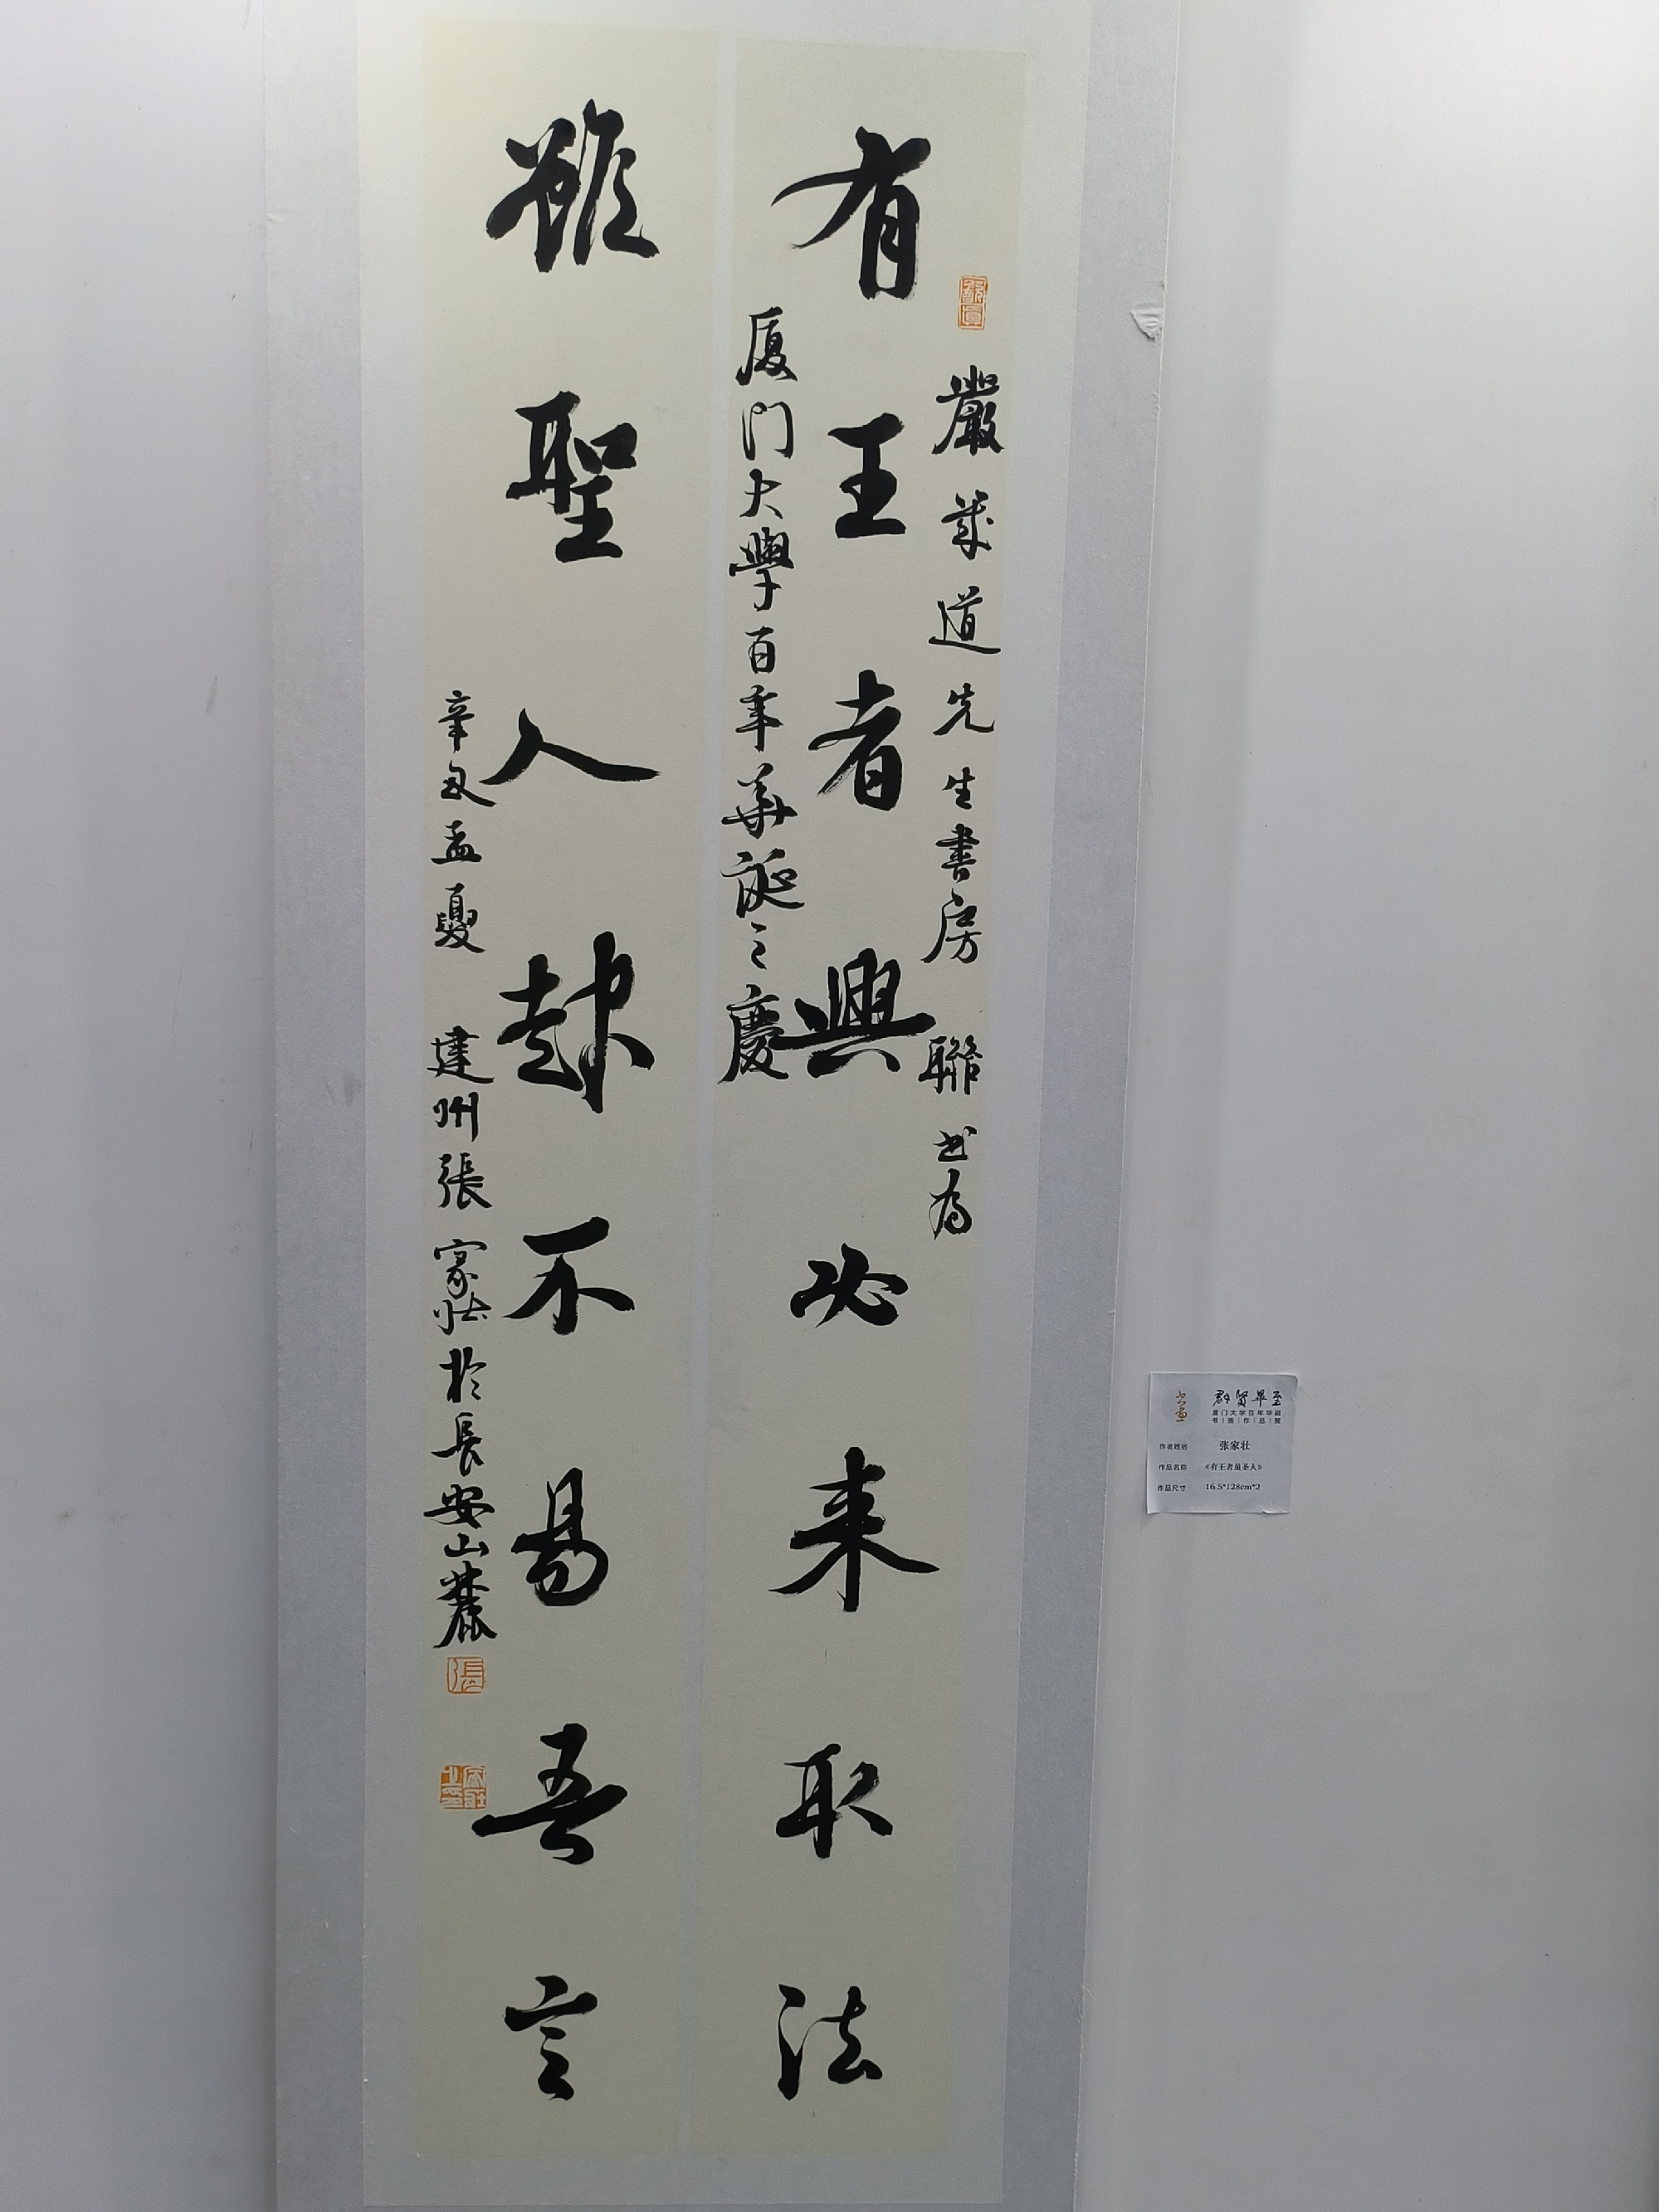 有王者興必来取法
嚴幾道先生書房聯书為
厦门大學百年華誕之慶
雖聖人起不易吾言
辛丑孟夏 建州張家壯於長安山麓
張
群贤毕至
厦门大学百年华诞
书|画|作|品|展
作者姓名 张家壮
作品名称 《有王者虽圣人》
作品尺寸 16.5*128cm*2